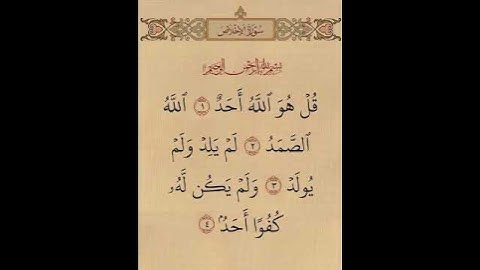 سُورَةُ الإِخْلَاصِ
بِسْمِ ٱللَّهِ ٱلرَّحْمَٰنِ ٱلرَّحِيمِ
قُلْ هُوَ ٱللَّهُ أَحَدٌ ١ ٱللَّهُ
ٱلصَّمَدُ ٢ لَمْ يَلِدْ وَلَمْ
يُولَدْ ٣ وَلَمْ يَكُن لَّهُۥ
كُفُوًا أَحَدٌۢ ٤